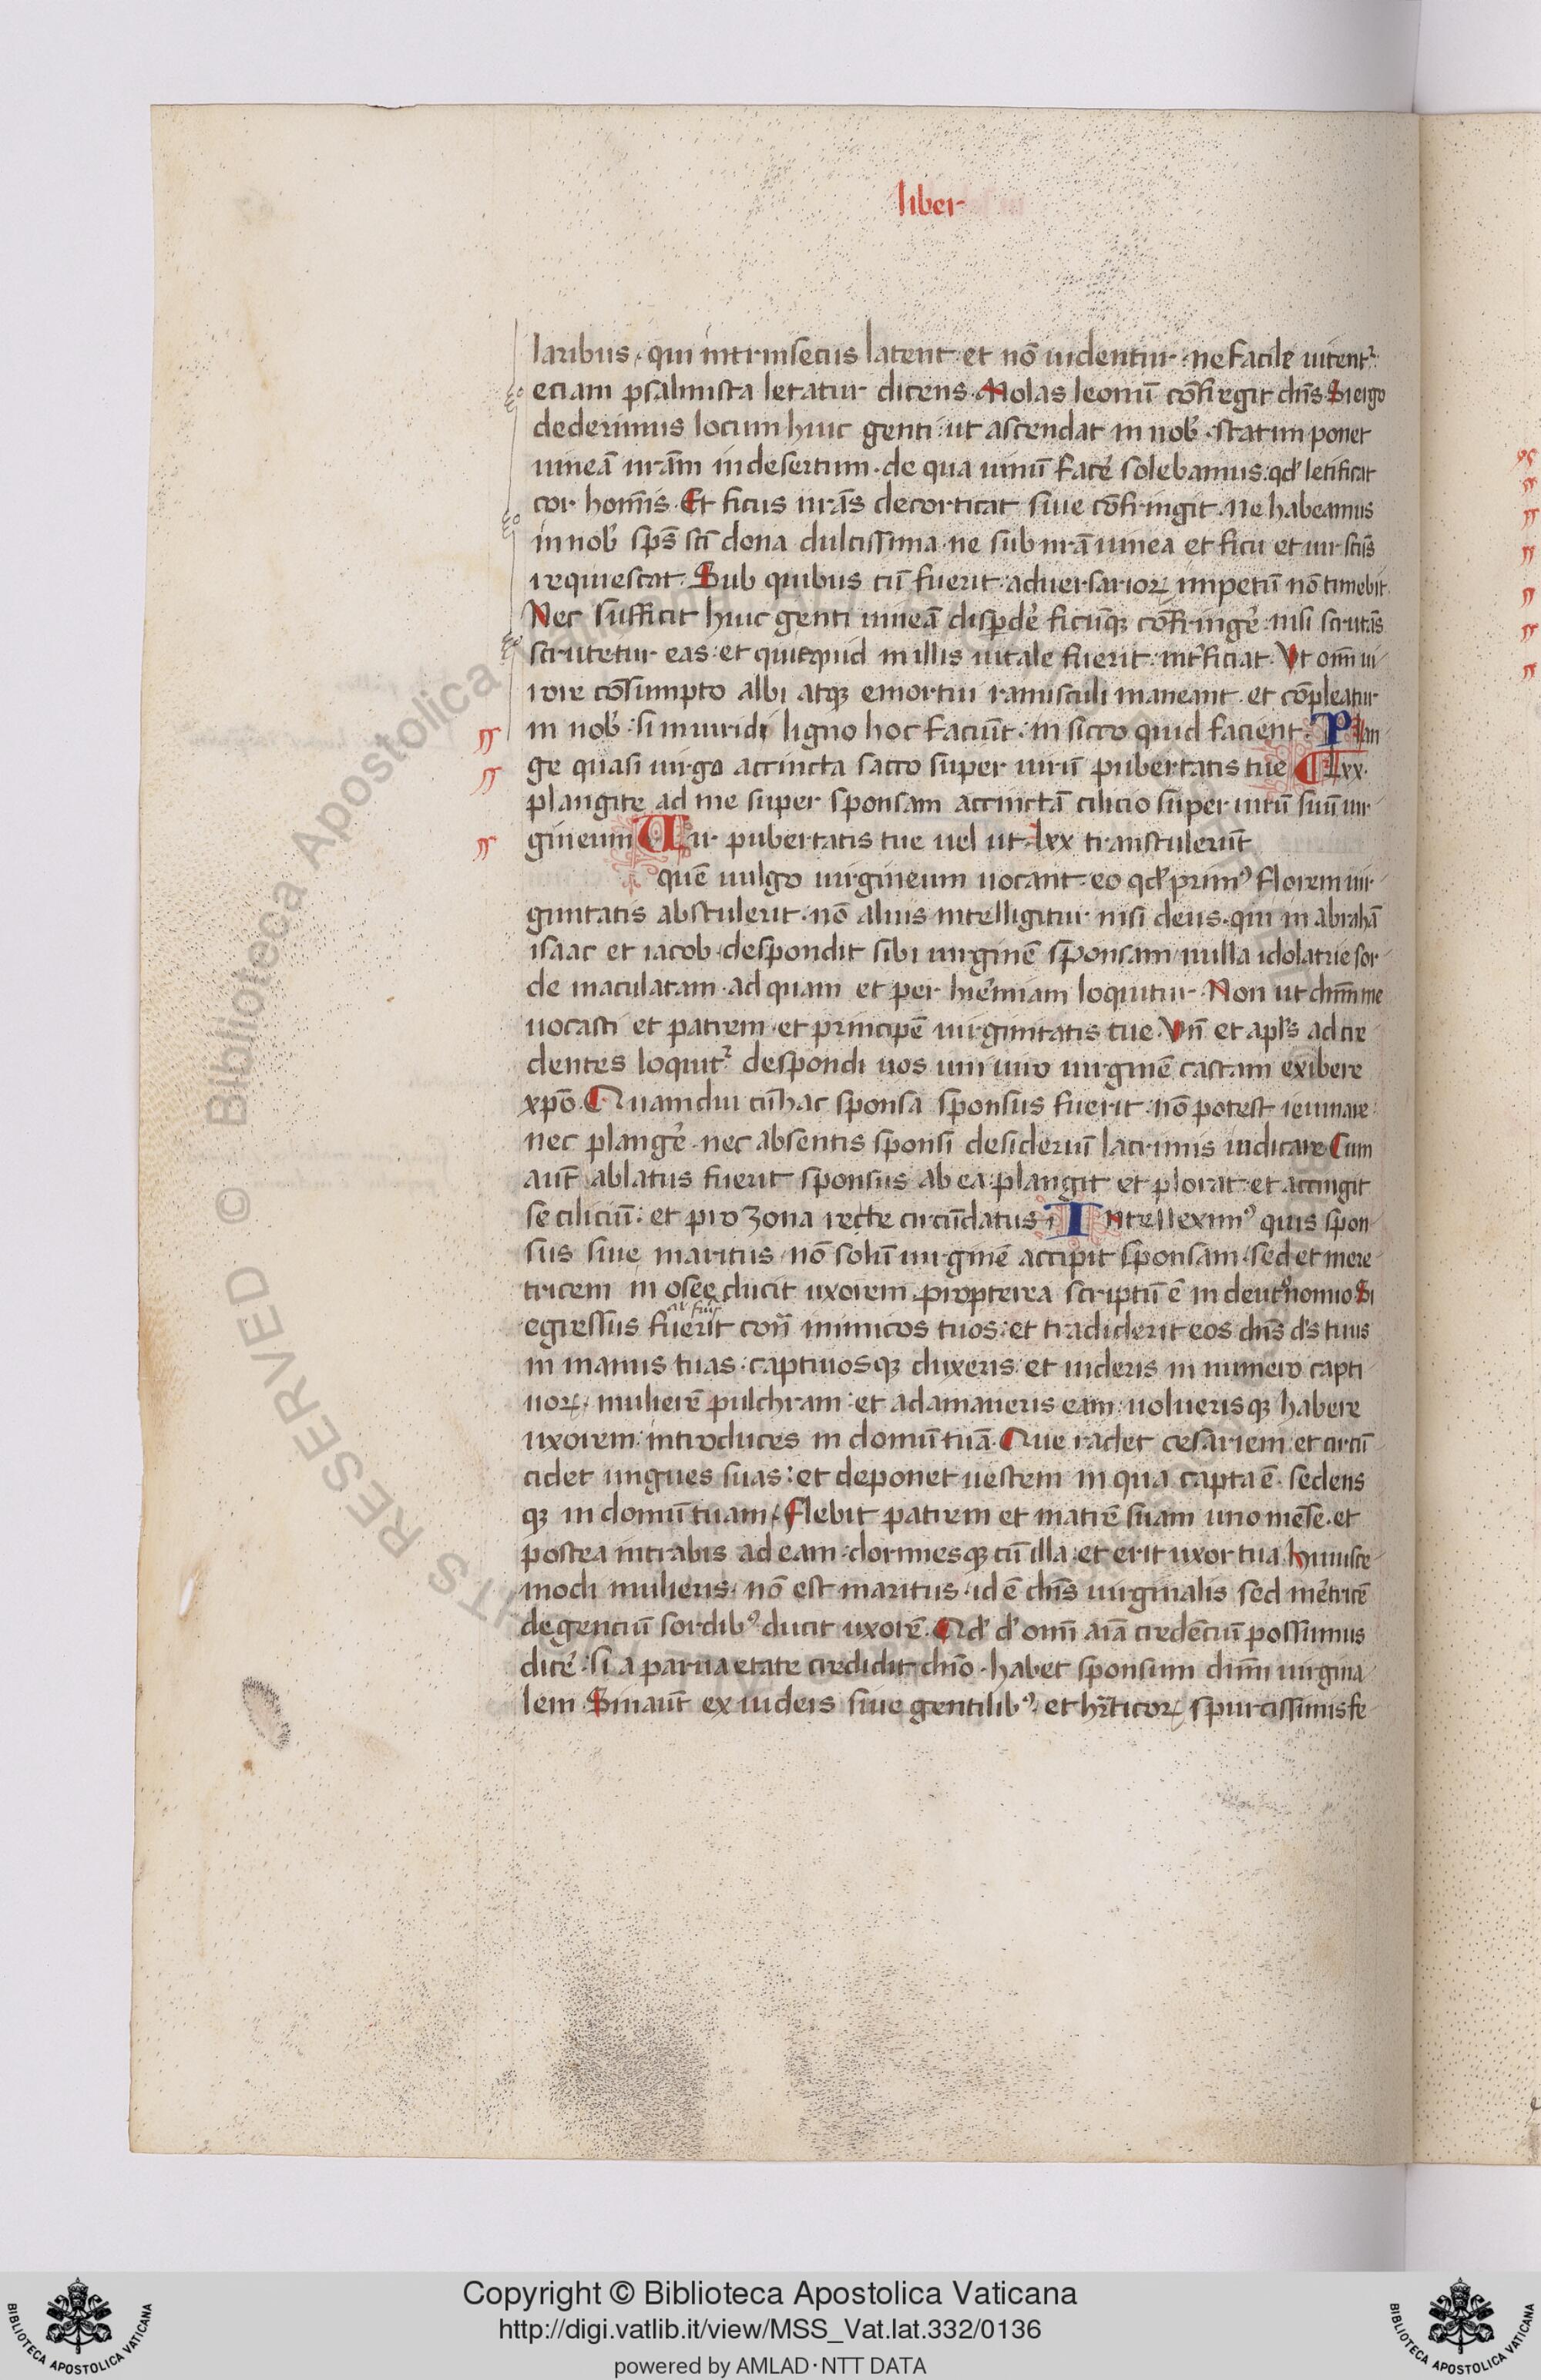 liber
laribus, qui intrinsecus latent et nō uidentur. ne facile uitent᷑.
eciam psalmista letatur dicens. Molas leonū cōfregit dn̄s. Si ergo
dederimus locum huic genti: ut ascendat in nob̓. statim ponet
uineā nr̄am in desertum. de qua uinū face̓ solebamus: qd̓ letificat
cor homīs. Et ficus nr̄as decorticat siue cōfringit. ne habeamus
in nob̓ sp̄s sc̄i dona dulcissima. ne sub nr̄a uinea et ficu et uir sc̄s
requiescat. Sub quibus cū fuerit: aduersarioꝝ impetū nō timebit.
Nec sufficit huic genti uineā disꝑde̓ ficūqꝫ cōfringe̓: nisi scrutās
scrutetur eas: et quicquid in illis uitale fuerit: int̓ficiat. Ut om̄i ui
rore cōsumpto albi atqꝫ emortui ramusculi maneant. et cōpleatur
in nob̓: si in uiridi ligno hoc faciūt: in sicco quid facient. Plan
ge quasi uirgo accincta sacco super uirū pubertatis tue lxx.
plangite ad me super sponsam accinctā cilicio super uirū suū uir
gineum Uir pubertatis tue uel ut lxx transtulerūt
quē uulgo uirgineum uocant. eo qd̓ primꝰ florem uir
ginitatis abstulerit. nō alius intelligitur nisi deus. qui in abrahā
isaac et iacob despondit sibi uirginē sponsam nulla idolatrie sor
de maculatam. ad quam et per hie̓miam loquitur. Non ut dn̄m me
uocasti et patrem et principē uirginitatis tue. Vn̄ et apl̓s ad cre
dentes loquit᷑ despondi uos uni uiro uirginē castam exibere
xp̄o. Quamdiu cū hac sponsa sponsus fuerit: nō potest ieiunare:
nec plange̓. nec absentis sponsi desideriū lacrimis iudicare Cum
aut̄ ablatus fuerit sponsus ab ea: plangit et plorat: et accingit
se ciliciū: et pro zona recte circūdatus ī Intelleximꝰ quis spon
sus siue maritus nō solū uirginē accipit sponsam. sed et mere
tricem in osee ducit uxorem. propterea scriptū ē in deut̓onomio Si
al̓ fu̓is
egressus fuerit con̄ inimicos tuos: et tradiderit eos dn̄s d̓s tuus
in manus tuas: captiuosqꝫ duxeris: et uideris in numero capti
uoꝝ mulierē pulchram: et adamaueris eam: uoluerisqꝫ habere
uxorem: introduces in domū tuā. Que radet cesariem: et circū
cidet ungues suas: et deponet uestem in qua capta ē. sedens
qꝫ in domū tuam, Flebit patrem et matrē suam uno mēse. et
postea intrabis ad eam: dormiesqꝫ cū illa: et erit uxor tua. Huiusce
modi mulieris nō est maritus. id ē dn̄s uirginalis sed me̓tricē
de genciū sordibꝰ ducit uxorē. Qd̓ d̓ om̄i aīa credēciū possumus
dice̓: si a parua etate credidit dn̄o. habet sponsum dn̄m uirgina
lem Sin aut̄ ex iudeis siue gentilibꝰ, et hr̄ticoꝝ spurcissimis fe
Copyright © Biblioteca Apostolica Vaticana
http://digi.vatlib.it/view/MSS_Vat.lat.332/0136
powered by AMLAD·NTT DATA